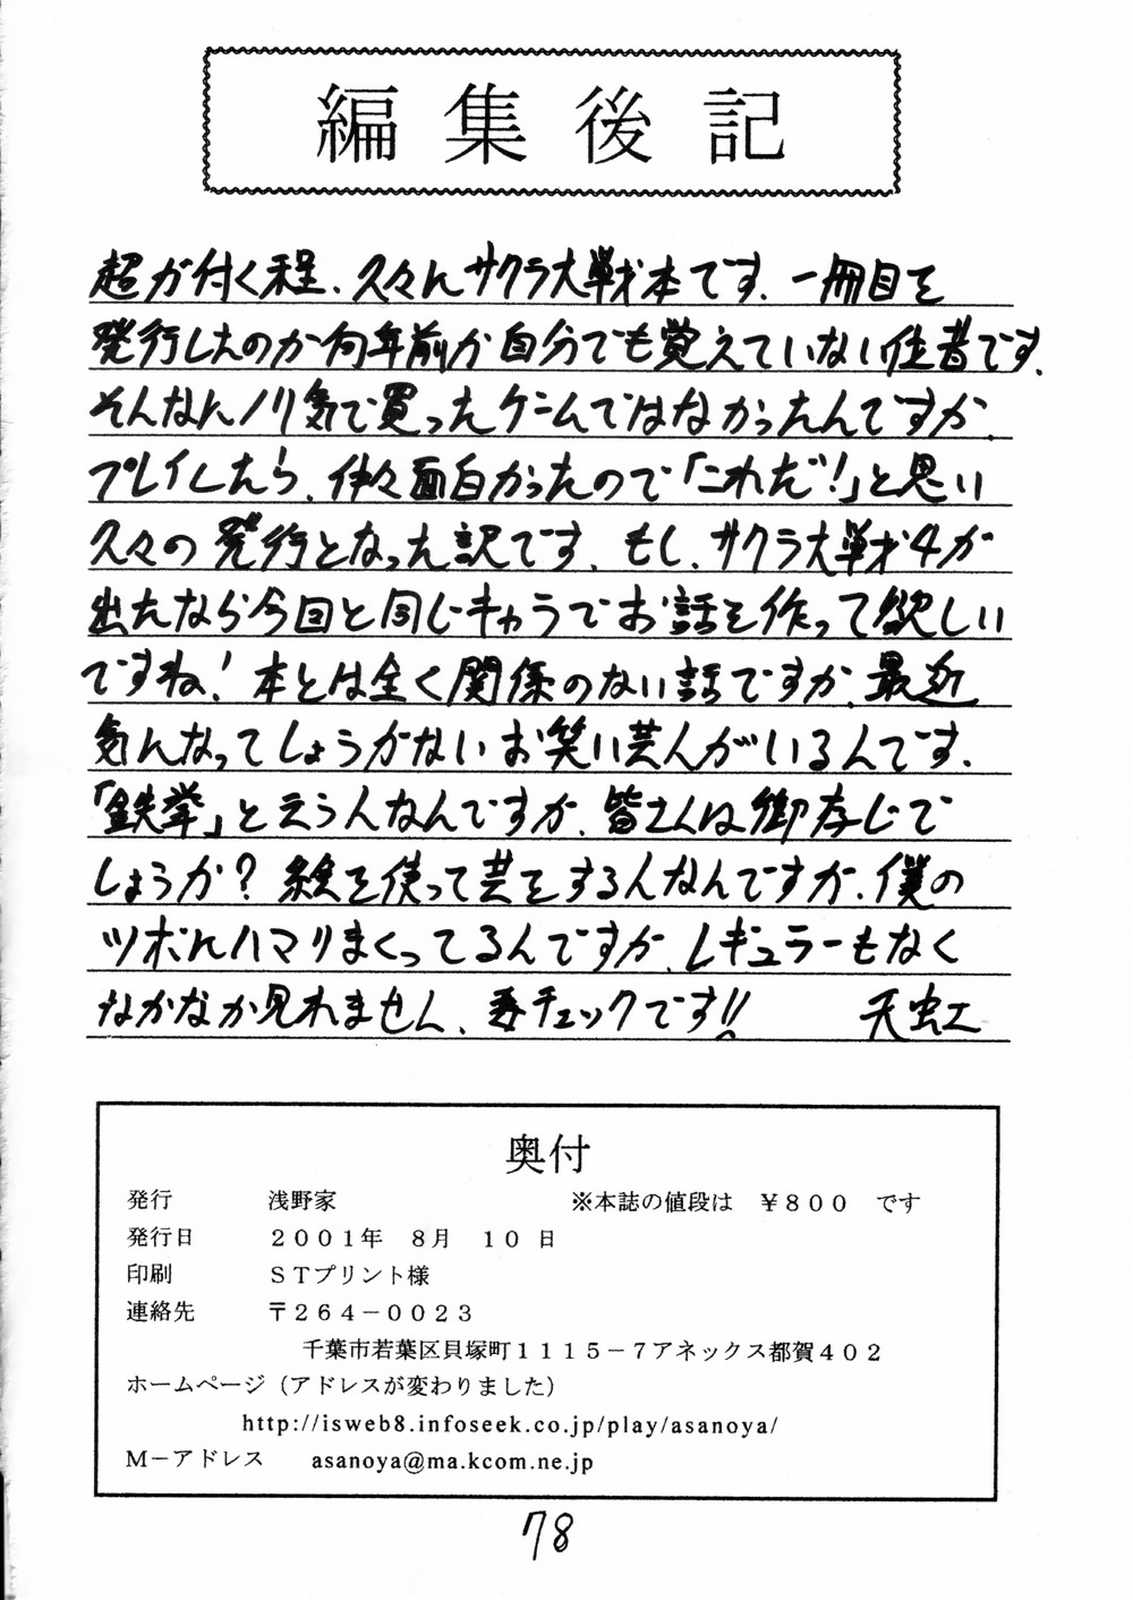 編集後記
超が付く程、久々にサクラ大戦本です、一冊目を
発行したのが何年前か自分でも覚えていない作者です、
そんなにノリ気で買ったゲームではなかったんですが、
プレイしたら、仲々面白かったので「これだ!」と思い
久々の発行となった訳です、もし、サクラ大戦4が
出たなら今回と同じキャラでお話を作って欲しい
ですね!本とは全く関係のない話ですが、最近
気になってしょうがないお笑い芸人がいるんです、
「鉄拳」と云う人なんですが、皆さんは御存じで
しょうか?絵を使って芸をする人なんですが、僕の
ツボにハマりまくってるんですが、レギュラーもなく
なかなか見れません、要チェックです!! 天虹
奥付
発行 浅野家 ※本誌の値段は ¥800 です
発行日 2001年 8月 10日
印刷 STプリント様
連絡先 〒264-0023
千葉市若葉区貝塚町1115-7アネックス都賀402
ホームページ(アドレスが変わりました)
http://isweb8.infoseek.co.jp/play/asanoya/
M-アドレス asanoya@ma.kcom.ne.jp
78